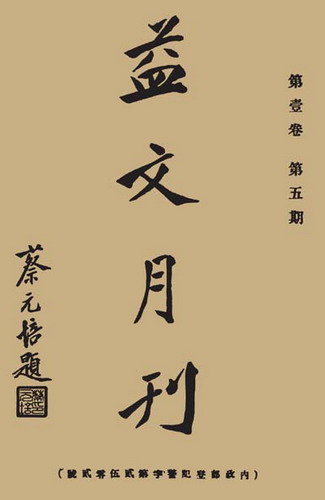 第壹卷 第五期
益文月刊
蔡元培題
(內政部登記警字第貳伍零貳號)